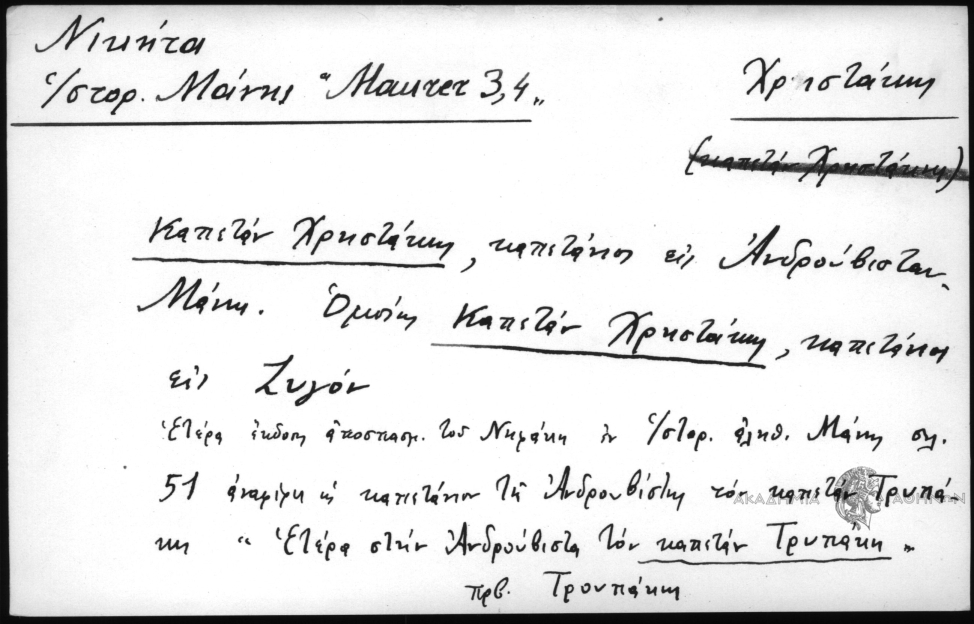 Νικήτα
Ἱστορ. Μάνης "Μaurer 3,4„
Χρηστάκης
(καπετάν Χρηστάκης)
Καπετάν Χρηστάκης, καπετάνιος εἰς Ἀνδρούβισταν
Μάνης. Ὁμοίως Καπετάν Χρηστάκης, καπετάνιος
εἰς Ζυγόν
Ἑτέρα ἔκδοσις ἀποσπασμ. τοῦ Νηφάκη ἐν Ἱστορ. ἀληθ. Μάνης σελ.
51 ἀναφέρει ὡς καπετάνιον τῆς Ἀνδρουβίστης τὸν καπετάν Τρυπά-
κη "Ἑτέρα στὴν Ἀνδρούβιστα τὸν καπετάν Τρυπάκη„
πρβ. Τρουπάκης
ΑΚΑΔΗΜΙΑ ΑΘΗΝΩΝ